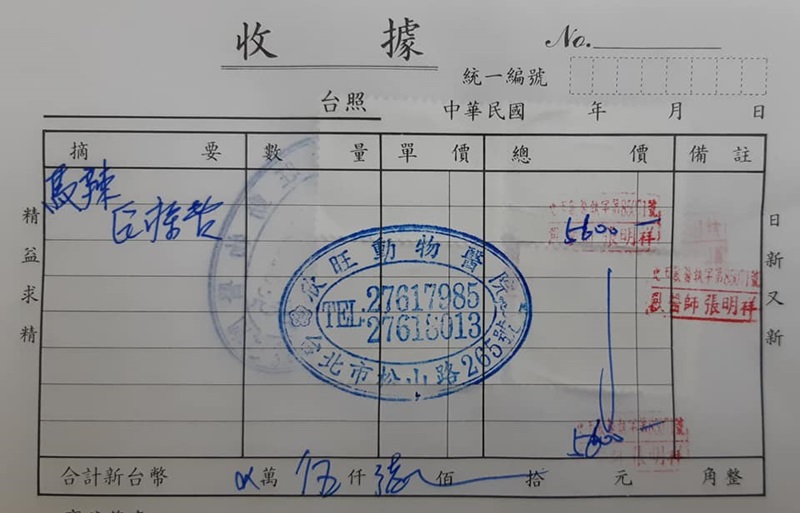 收據
No.
統一編號
台照
中華民國 年 月 日
摘要 數量 單價 總價 備註
馬辣
5600
精益求精
日新又新
欣旺動物醫院
TEL.27617985
27618013
台北市松山路265號
獸醫師張明祥
5600
合計新台幣 萬 伍仟 陸佰 拾 元 角整